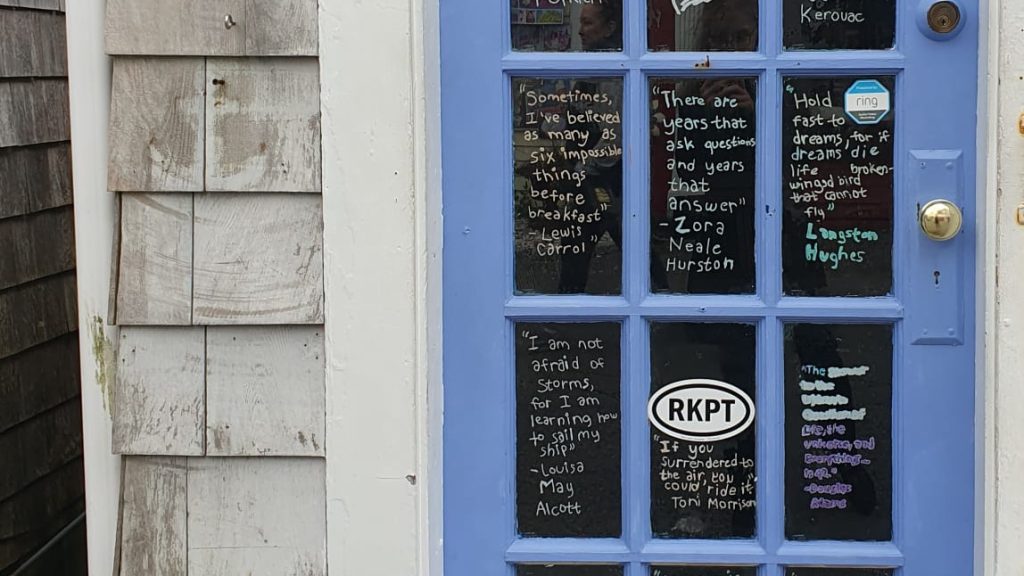 Kerouac
"Sometimes,
I've believed
as many as
six impossible
things
before
breakfast"
-Lewis
Carrol"
"There are
years that
ask questions
and years
that
answer"
-Zora
Neale
Hurston
"Hold
fast to
dreams, for if
dreams die
life broken-
winged bird
that cannot
fly"
Langston
Hughes
ring
"I am not
afraid of
Storms,
for I am
learning how
to sail my
ship"
-Louisa
May
Alcott
RKPT
"If you
surrendered to
the air, you
could ride it"
Toni Morrison
"The
Life, the
universe, and
Everything...
is 42."
-Douglas
Adams